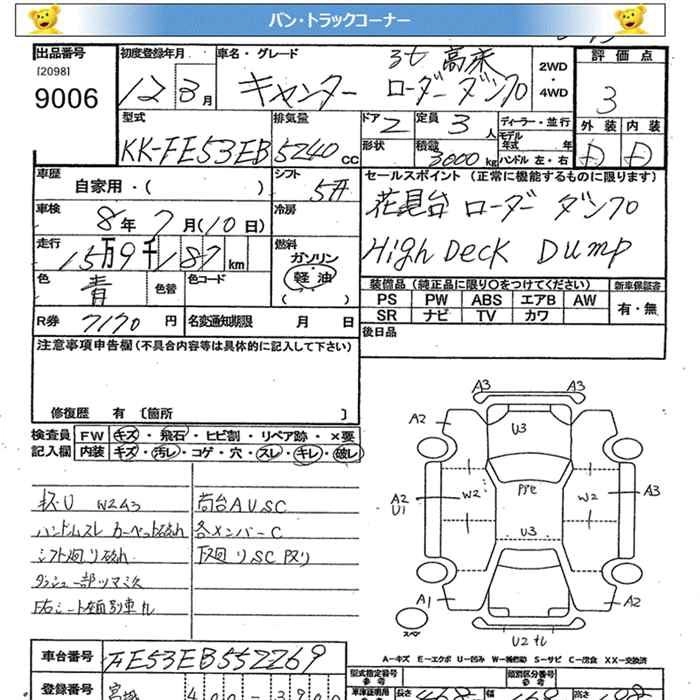 バン・トラックコーナー
出品番号
[2098]
9006
初度登録年月
12 3月
車名・グレード
3t 高床
キャンター ローダーダンプ
2WD
・
4WD
評価点
3
外装 内装
D D
型式
KK-FE53EB
排気量
5240cc
ドア
2
定員
3人
形状
積載
3000kg
ディーラー・並行
モデル年式 年
ハンドル 左・右
車歴
自家用・( )
シフト
5F
セールスポイント (正常に機能するものに限ります)
花見台 ローダー ダンプ
High Deck Dump
車検
8年7月(10日)
冷房
走行
15万9千187km
燃料
ガソリン
軽油
( )
色
青
色替
色コード
装備品 (純正品に限り〇をつけてください)
新車保証書
PS PW ABS エアB AW
SR ナビ TV カワ
有・無
R券 7170円
名変通知期限 月 日
後日品
注意事項申告欄(不具合内容等は具体的に記入して下さい)
修復歴 有 [箇所 ]
検査員記入欄
FW キズ・飛石・ヒビ割・リペア跡・×要
内装 キズ・汚レ・コゲ・穴・スレ・キレ・破レ
W2A3
荷台AUSC
ハンドルスレ カーペット破れ
各メンバーC
シフト廻り破れ
下廻りSC
A3 A3
A2 U3 A2
A2
U1
W2 W2 A3
U3
A1 A2
スペア
U2
A-キズ E-エクボ U-凹み W-補修跡 S-サビ C-腐食 XX-交換済
車台番号
FE53EB552269
型式指定番号
類別区分番号
登録番号
宮城 400
車庫証明用参考
長さ 468
幅
高さ